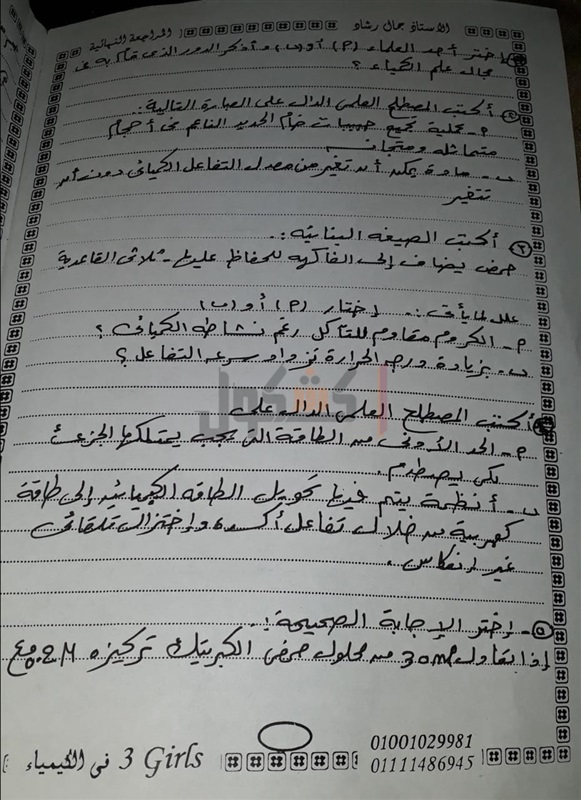 الأستاذ جمال رشاد المراجعة النهائية
إختر أحد العلماء (P) أو (ب) وأذكر الدور الذى قام به فى
مجال علم الكيمياء ؟
أكتب المصطلح العلمى الدال على العبارة التالية:
P - عملية تجميع حبيبات خام الحديد الناعم فى أحجام
متماثله ومتجانسه
ب - مادة يمكن أن تغير من معدل التفاعل الكيميائى دون أن
تتغير
٣ أكتب الصيغه البنائيه :.
حمض يضاف إلى الفاكهه للحفاظ عليها - ثلاثى القاعدية
علل لما يأتى :. إختار (P) أو (ب)
P - الكروم مقاوم للتآكل رغم نشاطه الكيميائى ؟
ب - بزيادة درجه الحرارة تزداد سرعه التفاعل ؟
كشكول
أكتب المصطلح العلمى الدال على
P - الحد الأدنى من الطاقة التى يجب يمتلكها الجزئ
لكى يصطدم .
ب - أنظمة يتم فيها تحويل الطاقه الكيميائيه إلى طاقة
كهربية من خلال تفاعل أكسده وإختزال تلقائى
غير إنعكاسى .
٥ - إختر الإجابة الصحيحة :.
إذا تعادل 30ml من محلول حمض الكبريتيك تركيزه 0.2M مع
01001029981
01111486945
3 Girls فى الكيمياء